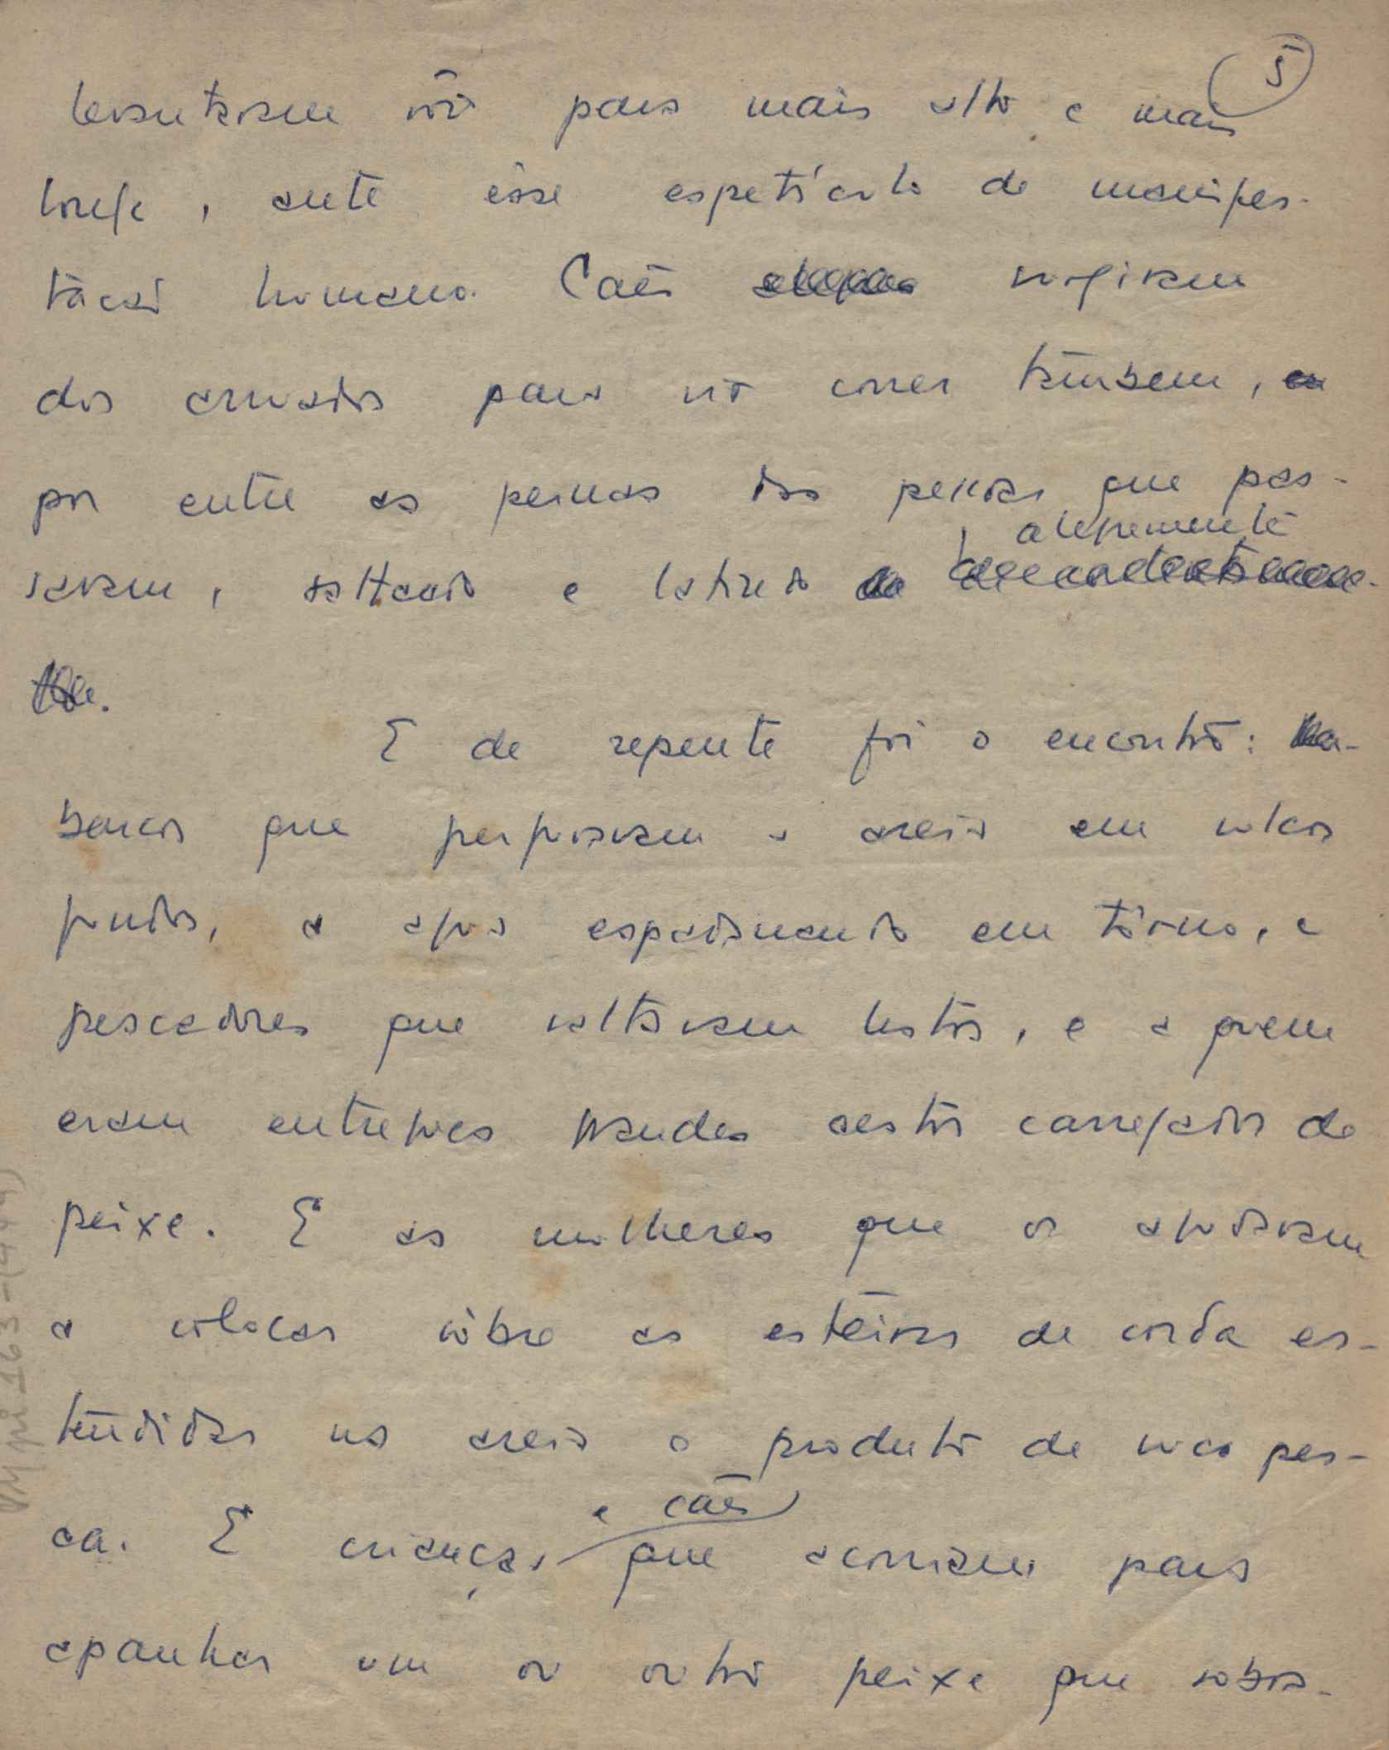 5
levantaram vôo para mais alto e mais
longe, ante êsse espetáculo de manifes-
tação humana. Cães surgiram
dos arruados para vir correr também,
por entre as pernas das pessoas que pas-
alegremente
savam, saltando e latindo
E de repente foi o encontro:
barcos que perfuravam a areia em sulcos
fundos, a água espadanando em tôrno, e
pescadores que saltavam lestos, e a quem
eram entregues grandes cestos carregados de
peixe. E as mulheres que os ajudavam
a colocar sôbre as esteiras de corda es-
tendidas na areia o produto de sua pes-
e cães
ca. E crianças que acorriam para
apanhar um ou outro peixe que sobra-